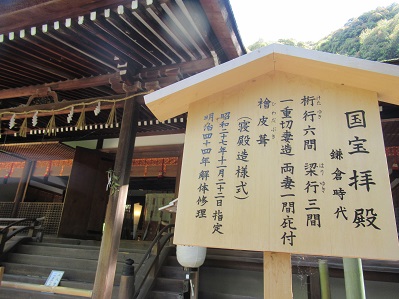 国宝 拝殿
鎌倉時代
桁行六間 梁行三間
けた はり
一重切妻造 両妻一間庇付
檜皮葺
ひわだぶき
(寝殿造様式)
昭和二十七年十一月二十二日指定
明治四十四年 解体修理